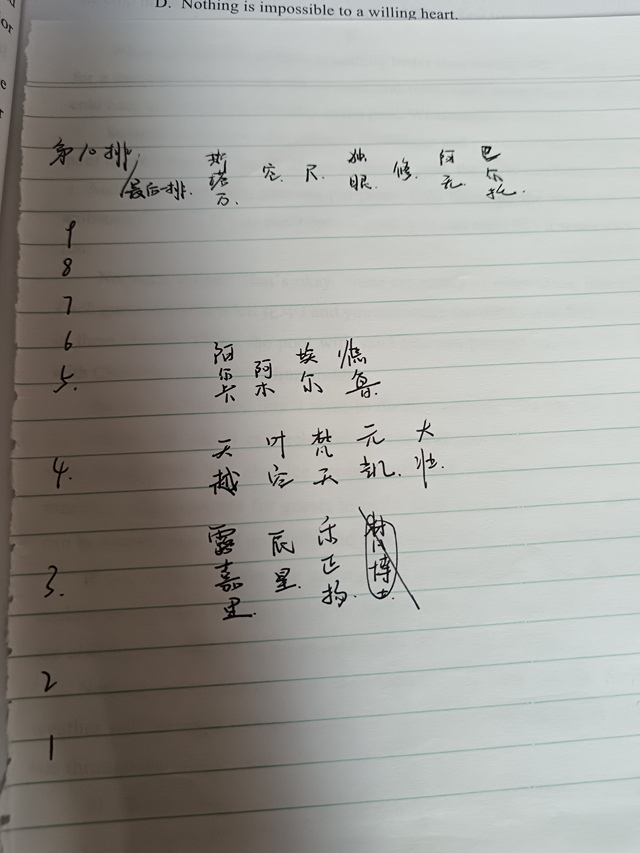 D. Nothing is impossible to a willing heart.
第10排/最后一排. 斯塔万. 空. 尺. 独眼 修. 阿元. 巴尔托.
9
8
7
6
5. 阿尔卡 阿木 埃尔 焦鲁.
4. 天越 叶空 梵天 元凯. 大壮.
3. 露嘉里. 辰星. 乐正扬. 博士.
2
1